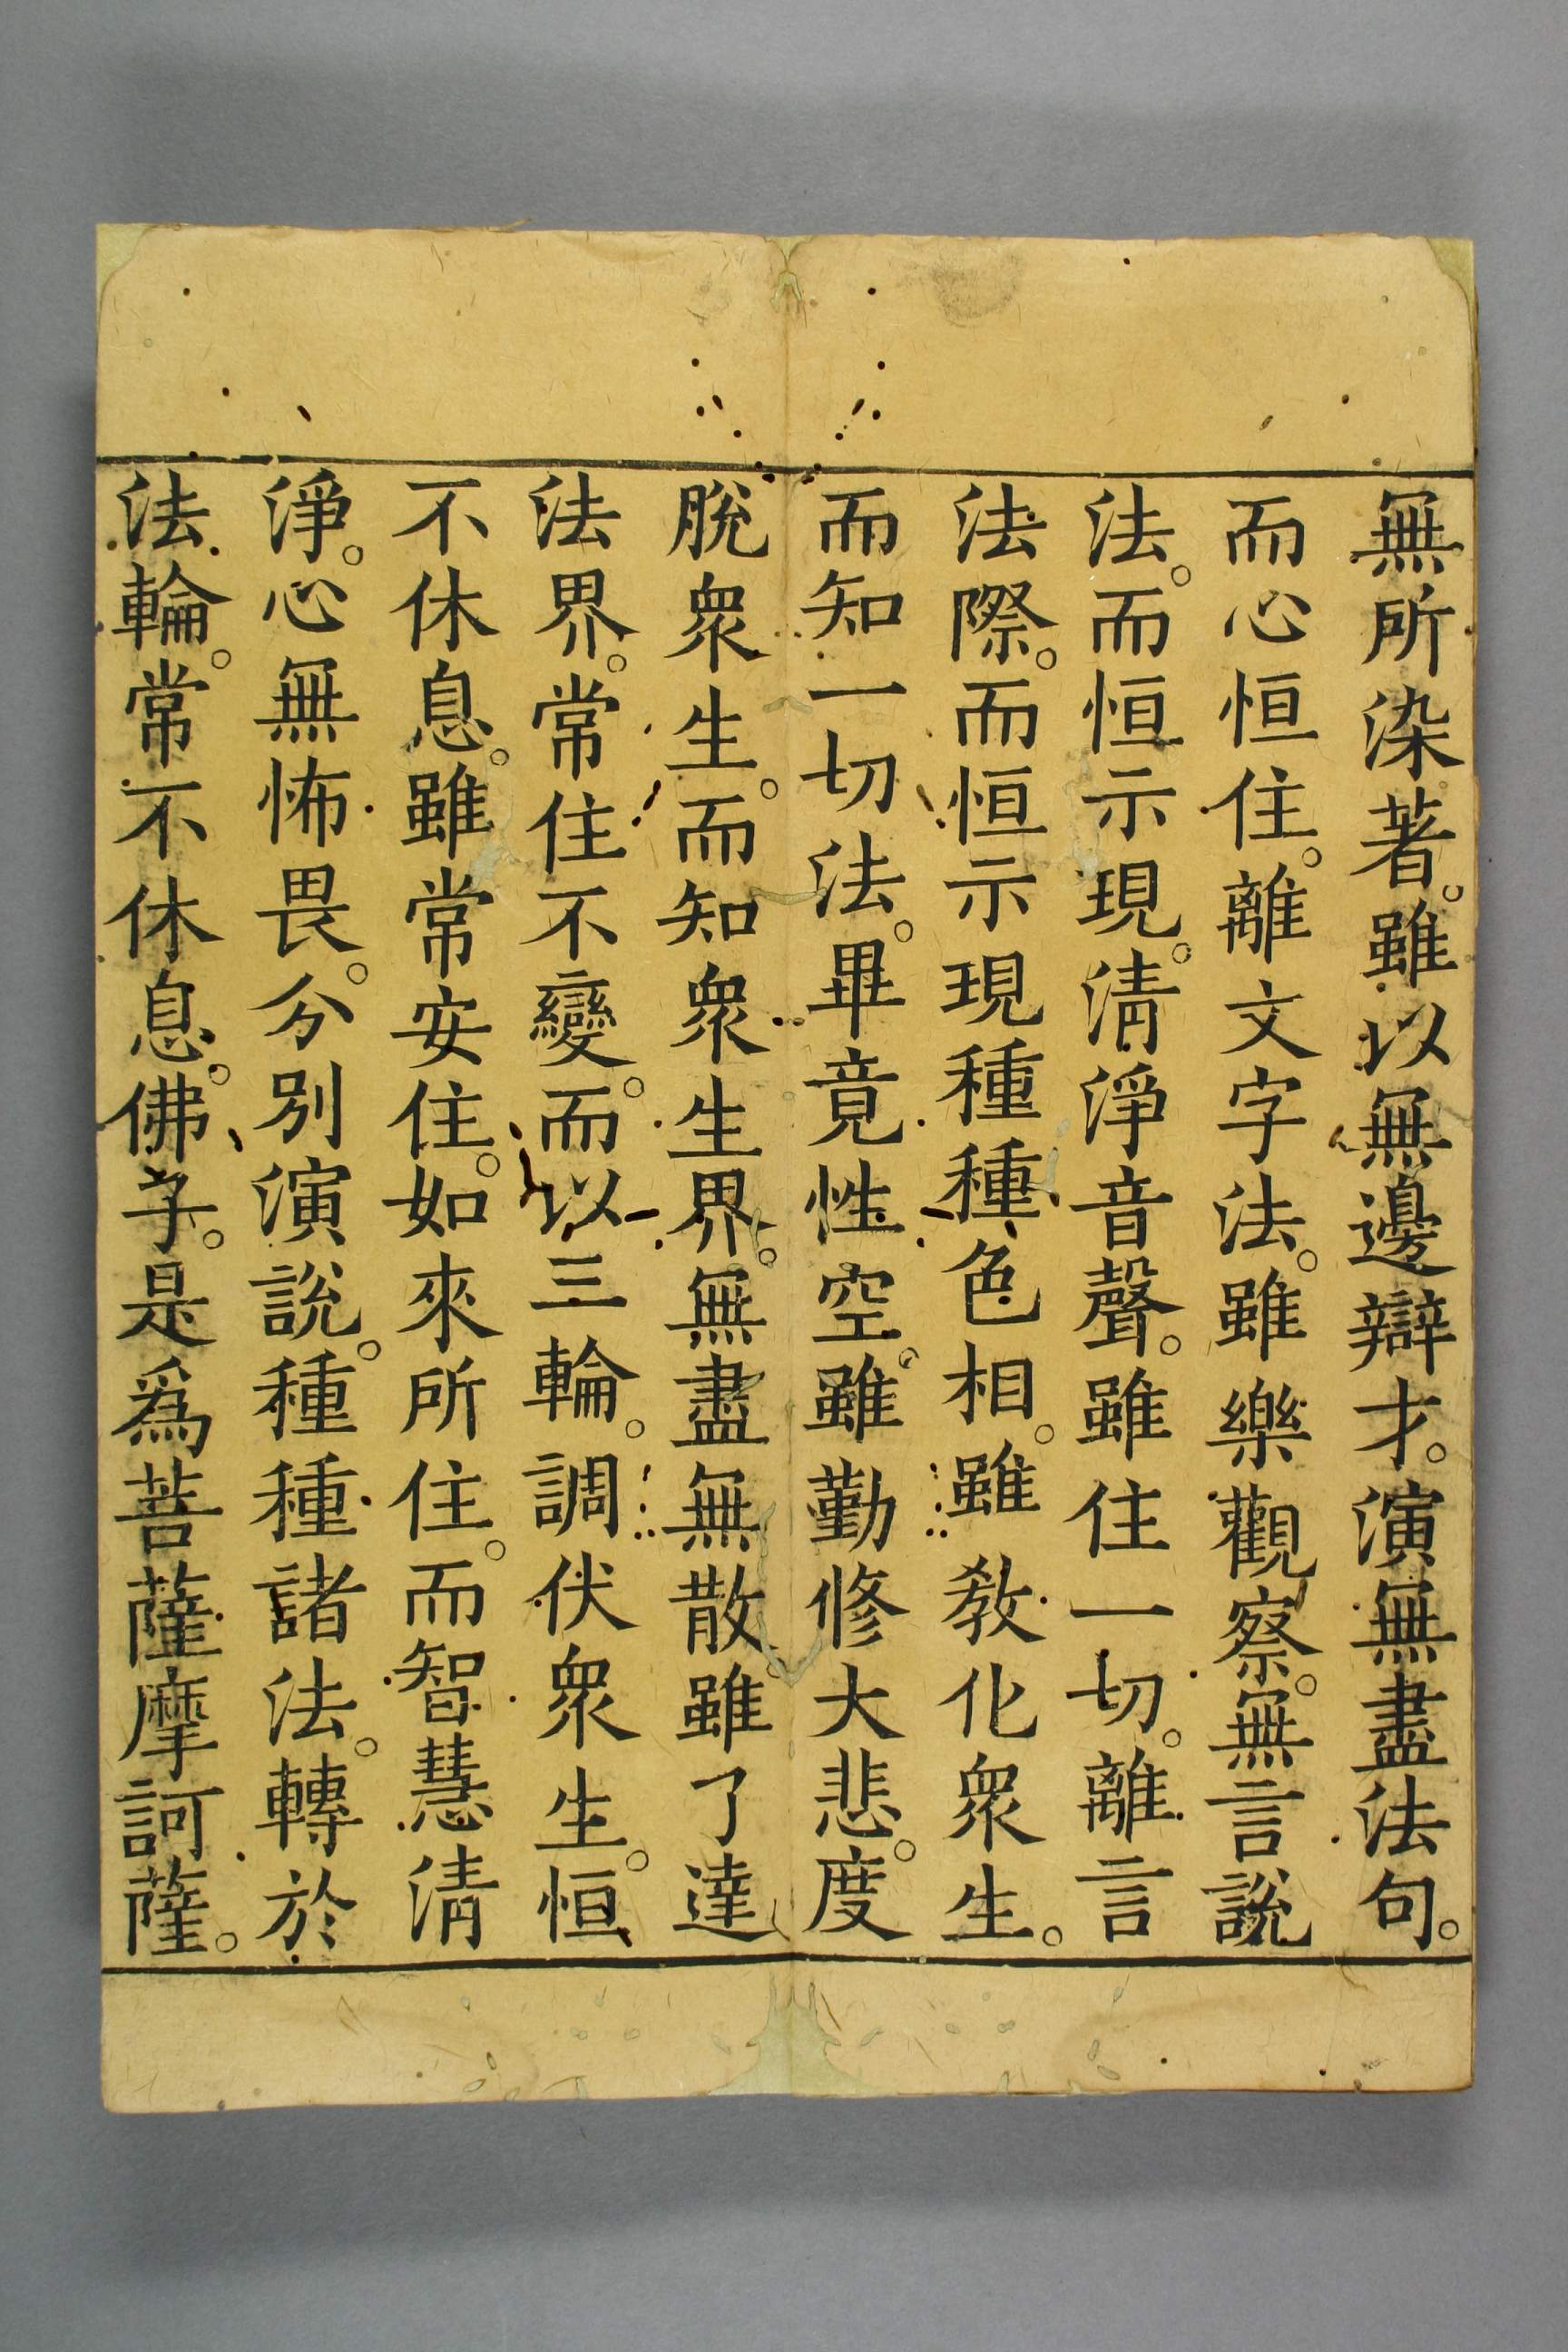 無所染著。雖以無邊辯才。演無盡法句。
而心恒住。離文字法。雖樂觀察。無言說
法。而恒示現。清淨音聲。雖住一切。離言
法際。而恒示現種種色相。雖教化衆生。
而知一切法。畢竟性空。雖勤修大悲。度
脫衆生。而知衆生界。無盡無散。雖了達
法界。常住不變。而以三輪。調伏衆生。恒
不休息。雖常安住。如來所住。而智慧清
淨。心無怖畏。分別演說。種種諸法。轉於
法輪。常不休息。佛子。是爲菩薩摩訶薩。